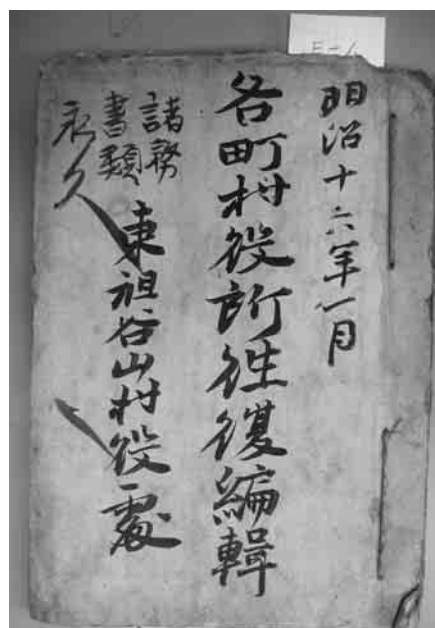 明治十六年一月
各町村役所往復編輯
諸務
書類
永久
東祖谷山村役處